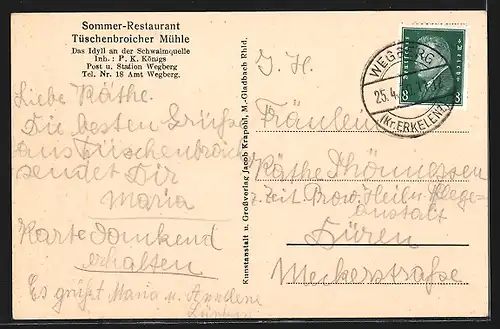 Sommer-Restaurant
Tüschenbroicher Mühle
Das Idyll an der Schwalmquelle
Inh.: P. K. Königs
Post u. Station Wegberg
Tel. Nr. 18 Amt Wegberg.
Liebe Käthe.
Die besten Grüße
aus Tüschenbroich
sendet Dir
Maria
Karte dankend
erhalten
Es grüßt Maria u.
Kunstanstalt u. Großverlag Jacob Krapohl, M.-Gladbach Rhld.
WEGBERG
25.4.
(Kr. ERKELENZ)
8 8
I. H.
Fräulein
Käthe Thönnessen
z. Zeit Prov. Heil u. Pflege=
anstalt
Düren
Meckerstraße